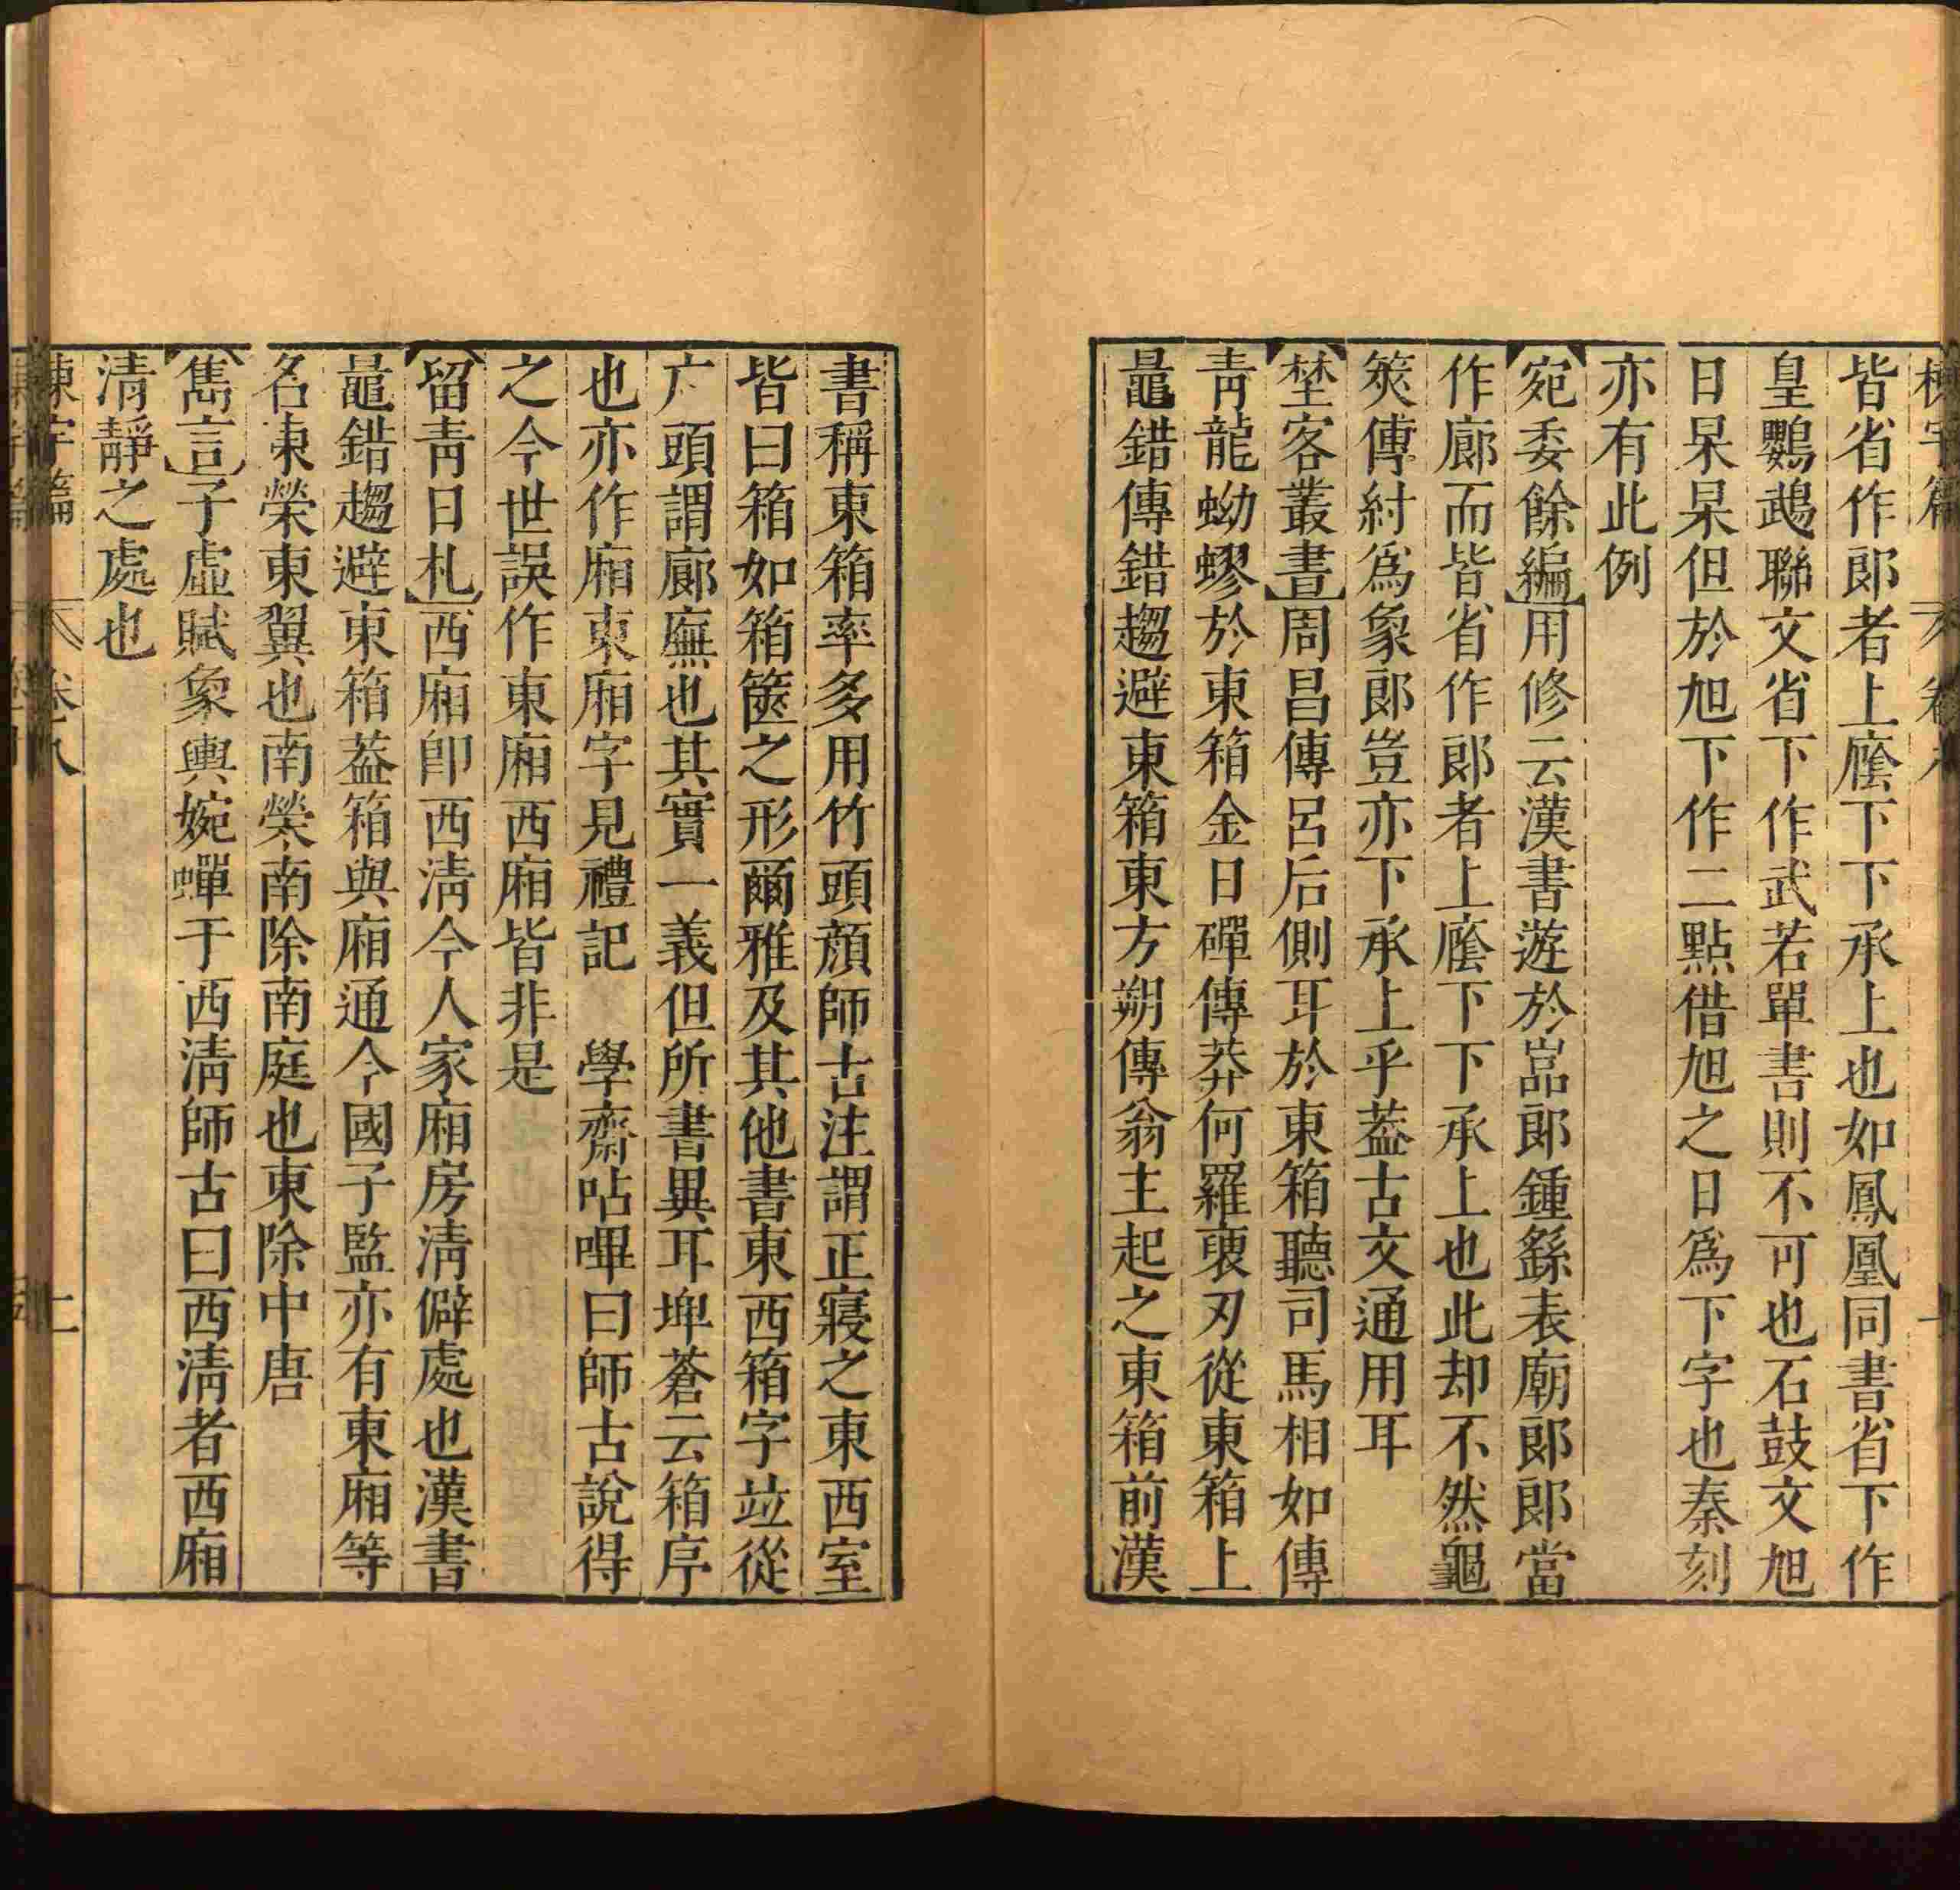 皆省作郞者上廕下下承上也如鳳凰同書省下作
皇鸚鵡聯文省下作武若單書則不可也石鼓文旭
日杲杲但於旭下作二點借旭之日爲下字也秦刻
亦有此例
宛委餘編用修云漢書遊於嵓郞鍾繇表廟郞郞當
作廊而皆省作郞者上廕下下承上也此却不然龜
筴傳紂爲象郞豈亦下承上乎葢古文通用耳
埜客叢書周昌傳呂后側耳於東箱聽司馬相如傳
靑龍蚴蟉於東箱金日磾傳莽何羅褏刃從東箱上
鼂錯傳錯趨避東箱東方朔傳翁主起之東箱前漢
書稱東箱率多用竹頭顔師古注謂正寢之東西室
皆曰箱如箱篋之形爾雅及其他書東西箱字竝從
广頭謂廊廡也其實一義但所書異耳埤蒼云箱序
也亦作廂東廂字見禮記 學齋呫嗶曰師古說得
之今世誤作東廂西廂皆非是
留靑日札西廂卽西淸今人家廂房淸僻處也漢書
鼂錯趨避東箱葢箱與廂通今國子監亦有東廂等
名東榮東翼也南榮南除南庭也東除中唐
雋言子虛賦象輿婉蟬于西淸師古曰西淸者西廂
淸靜之處也
卷八